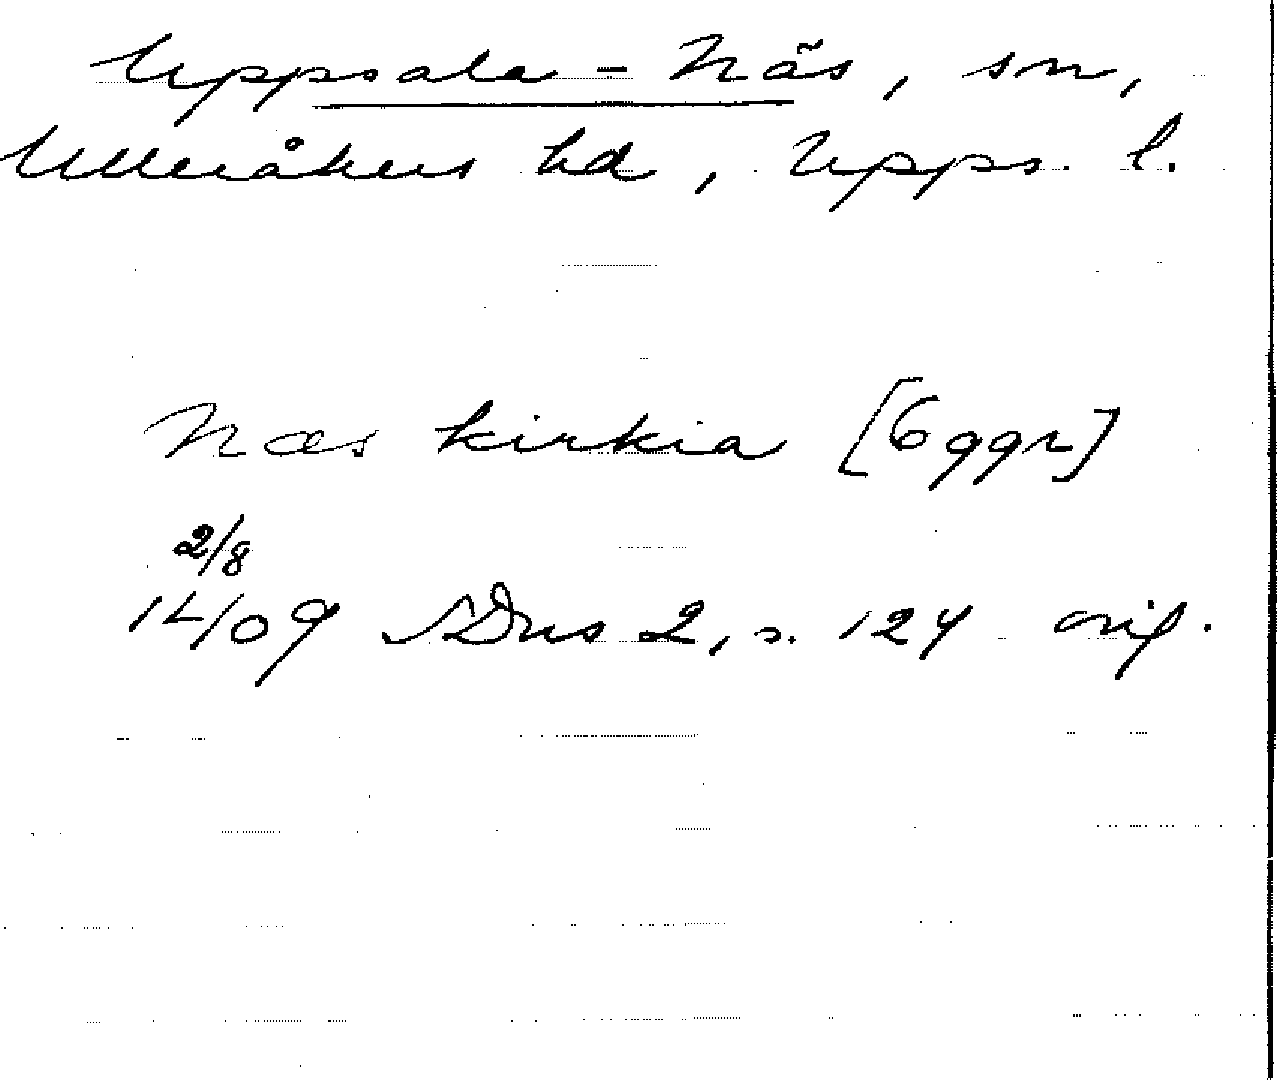 Uppsala-Näs, sn,
Ulleråkers hd, Upps. l.
Næs kirkia [6 ggr]
2/8
1409 SDns 2, s. 124 orig.